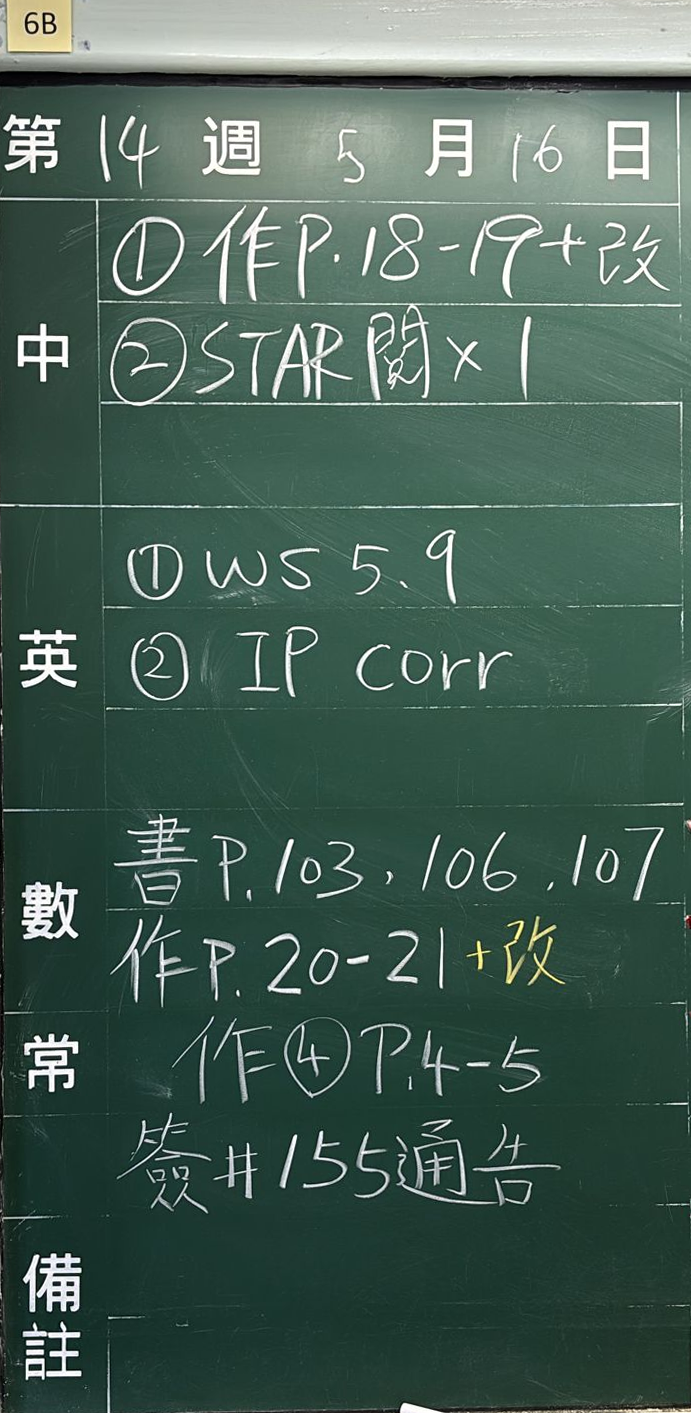 6B
第 14 週 5 月 16 日
中
①作P.18-19+改
②STAR閱×1
英
①WS 5.9
② IP corr
數
書P.103,106,107
作P.20-21+改
常
作④P.4-5
簽#155通告
備註